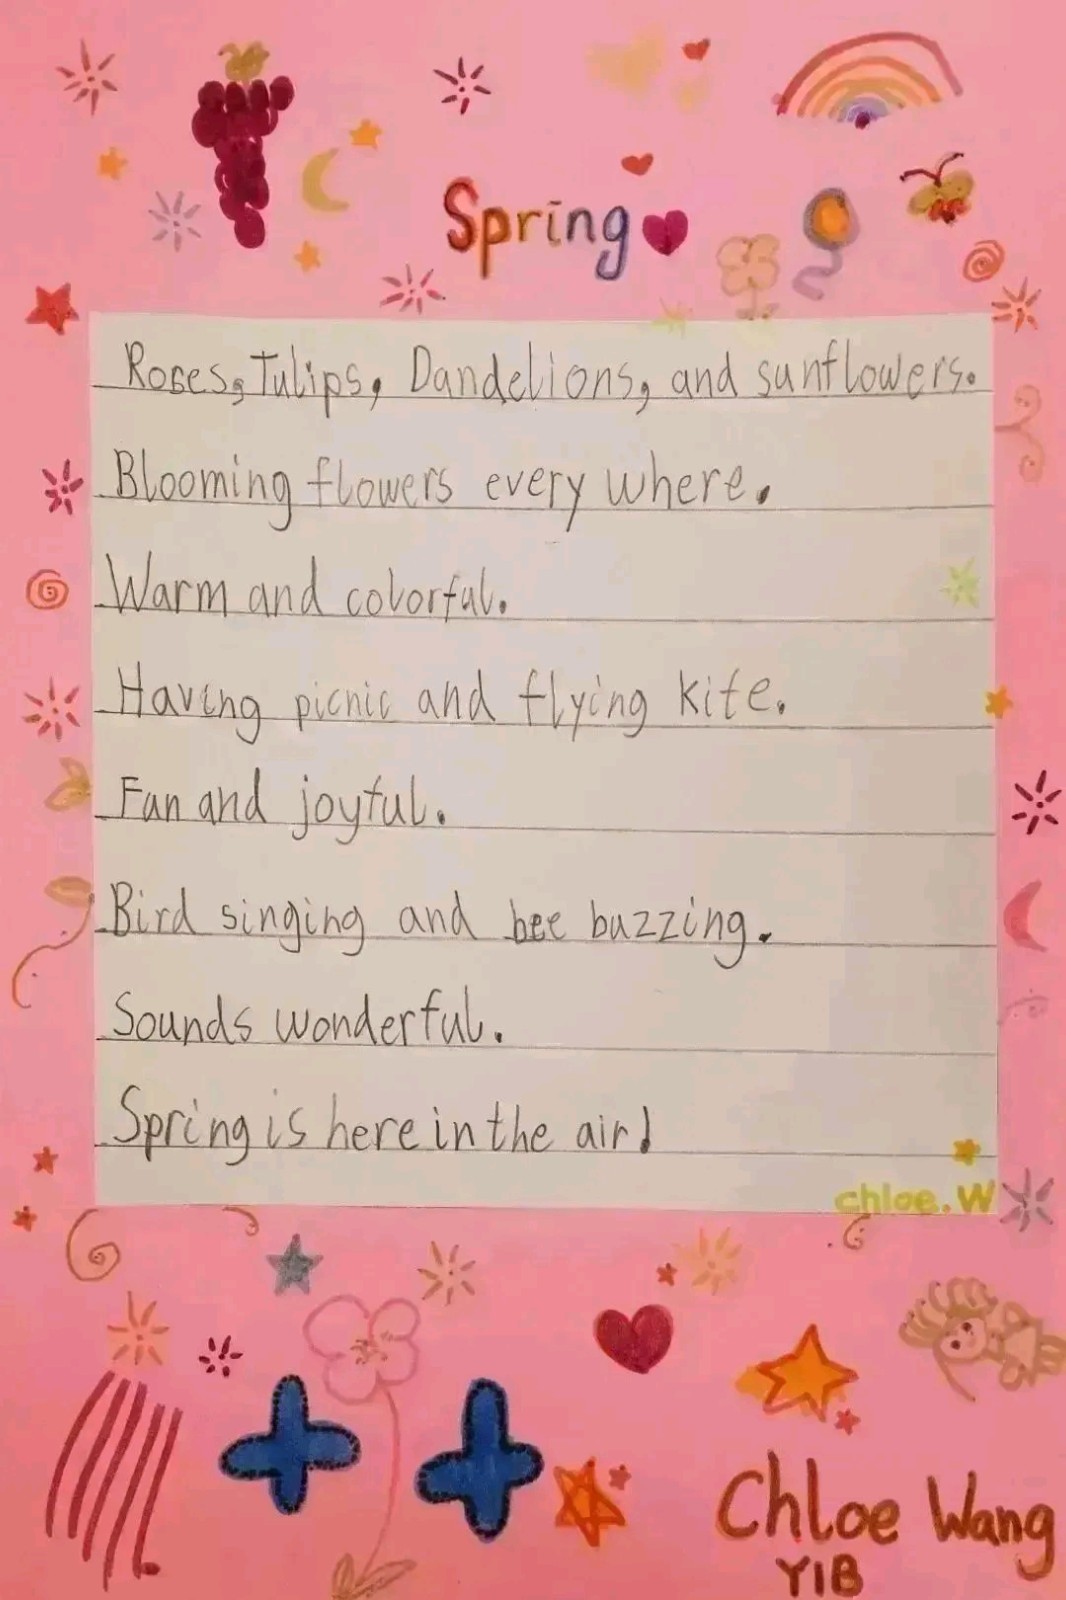 Spring
Roses, Tulips, Dandelions, and sunflowers.
Blooming flowers every where.
Warm and colorful.
Having picnic and flying kite.
Fun and joyful.
Bird singing and bee buzzing.
Sounds wonderful.
Spring is here in the air!
chloe.W
Chloe Wang
Y1B